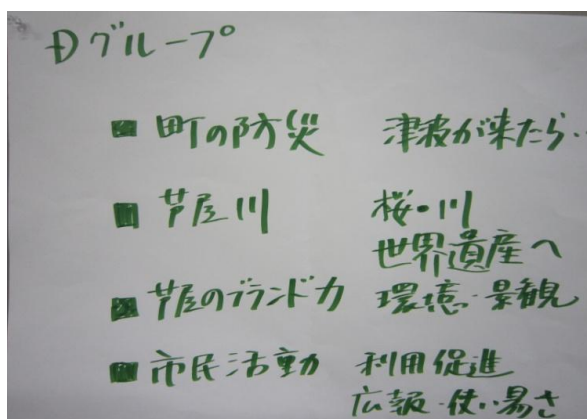 Dグループ
■ 町の防災 津波が来たら・
■ 芦屋川 桜・川
世界遺産へ
■ 芦屋のブランド力 環境・景観
■ 市民活動 利用促進
広報・使い易さ